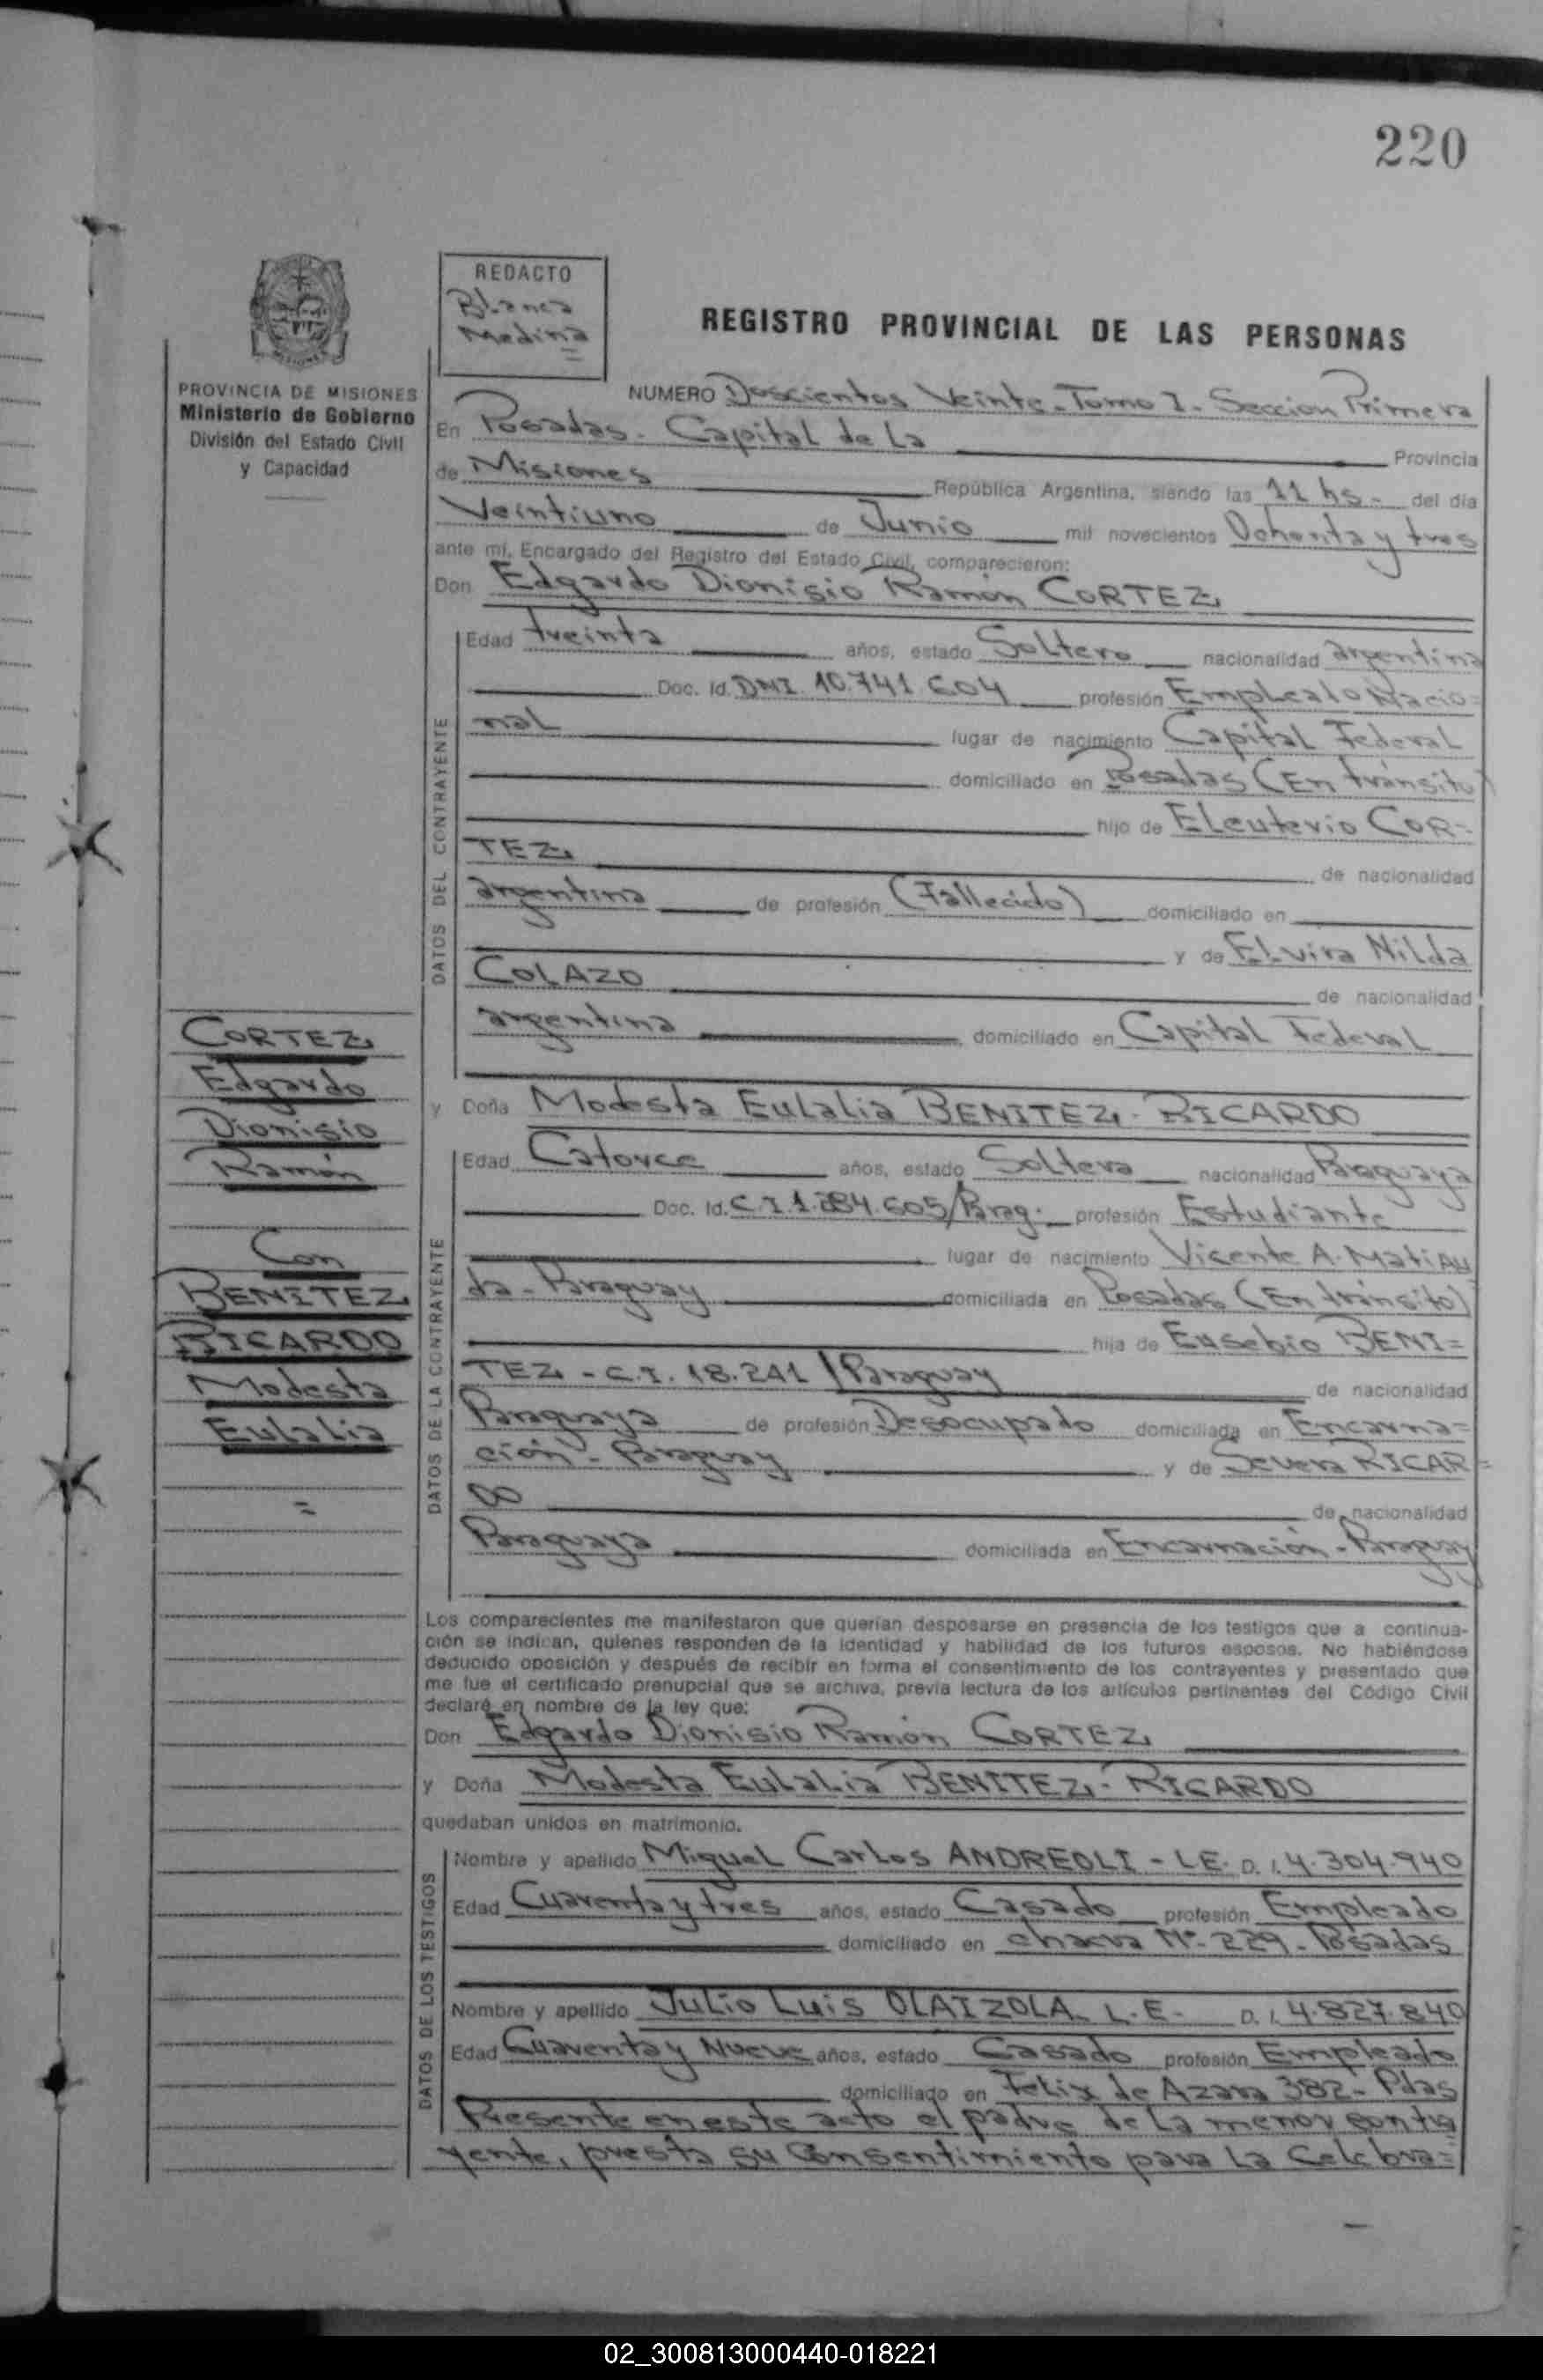 220
REDACTO
Blanca
Medina
REGISTRO PROVINCIAL DE LAS PERSONAS
PROVINCIA DE MISIONES
Ministerio de Gobierno
División del Estado Civil
y Capacidad
NUMERO Doscientos Veinte-Tomo I. Seccion Primera
En Posadas. Capital de La Provincia
de Misiones República Argentina, siendo las 11 hs- del día
Veintiuno de Junio mil novecientos Ochenta y tres
ante mí, Encargado del Registro del Estado Civil, comparecieron:
Don Edgardo Dionisio Ramón CORTEZ
DATOS DEL CONTRAYENTE
Edad treinta años, estado Soltero nacionalidad argentina
Doc. Id. DNI. 10.741.604 profesión Empleado Nacio=
nal lugar de nacimiento Capital Federal
domiciliado en Posadas (En tránsito)
hijo de Eleuterio COR-
TEZ de nacionalidad
argentina de profesión (Fallecido) domiciliado en
y de Elvira Nilda
COLAZO de nacionalidad
argentina domiciliado en Capital Federal
CORTEZ
Edgardo
Dionisio
Ramón
Con
BENITEZ
RICARDO
Modesta
Eulalia
=
y Doña Modesta Eulalia BENITEZ-RICARDO
DATOS DE LA CONTRAYENTE
Edad Catorce años, estado Soltera nacionalidad Paraguaya
Doc. Id. C.I.1.284.605/Parag. profesión Estudiante
lugar de nacimiento Vicente A. Matiau
da-Paraguay domiciliada en Posadas (En tránsito)
hija de Eusebio BENI=
TEZ - C.I. 18.241 /Paraguay de nacionalidad
Paraguaya de profesión Desocupado domiciliada en Encarna=
ción-Paraguay y de Severa RICAR=
DO de nacionalidad
Paraguaya domiciliada en Encarnación-Paraguay
Los comparecientes me manifestaron que querían desposarse en presencia de los testigos que a continua-
ción se indican, quienes responden de la identidad y habilidad de los futuros esposos. No habiéndose
deducido oposición y después de recibir en forma el consentimiento de los contrayentes y presentado que
me fue el certificado prenupcial que se archiva, previa lectura de los artículos pertinentes del Código Civil
declaré en nombre de la ley que:
Don Edgardo Dionisio Ramón CORTEZ
y Doña Modesta Eulalia BENITEZ-RICARDO
quedaban unidos en matrimonio.
DATOS DE LOS TESTIGOS
Nombre y apellido Miguel Carlos ANDREOLI - LE. D. I. 4.304.940
Edad Cuarenta y tres años, estado Casado profesión Empleado
domiciliado en chacra Nº- 229- Posadas
Nombre y apellido Julio Luis OLAIZOLA L.E- D. I. 4.827.840
Edad Cuarenta y Nueve años, estado Casado profesión Empleado
domiciliado en Felix de Azara 382- Pdas
Presente en este acto el padre de la menor contra
yente, presta su Consentimiento para La Celebra=
02_300813000440-018221